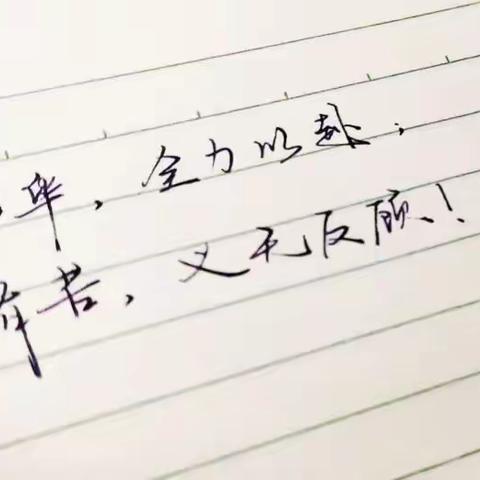 华，全力以赴；
苦，义无反顾！